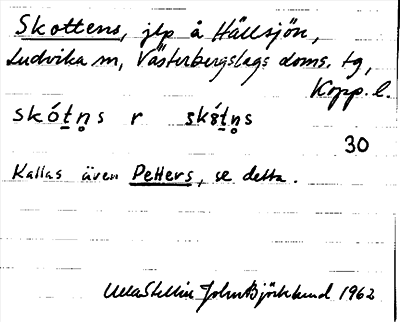 Skottens, jlp å Hällsjön,
Ludvika sn, Västerbergslags doms. tg,
Kopp. l.
skó̱tn̥s r skó̱tn̥s
30
Kallas även Petters, se detta.
John Björklund 1962